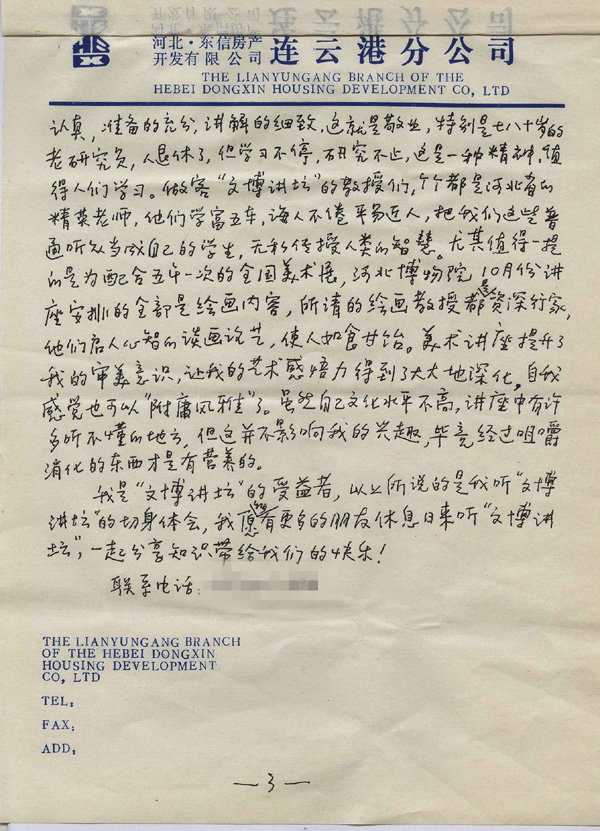 河北·东信房产
开发有限公司 连云港分公司
THE LIANYUNGANG BRANCH OF THE
HEBEI DONGXIN HOUSING DEVELOPMENT CO, LTD
认真,准备的充分,讲解的细致,这就是敬业,特别是七八十岁的
老研究员,人退休了,但学习不停,研究不止,这是一种精神,值
得人们学习。做客“文博讲坛”的教授们,个个都是河北省的
精英老师,他们学富五车,诲人不倦平易近人,把我们这些普
通听众当成自己的学生,无私传授人类的智慧。尤其值得一提
的是为配合五年一次的全国美术展,河北博物院10月份讲
座安排的全部是绘画内容,所请的绘画教授都是资深行家,
他们启人心智的谈画说艺,使人如食甘饴。美术讲座提升了
我的审美意识,让我的艺术感悟力得到了大大地深化,自我
感觉也可以“附庸风雅”了。虽然自己文化水平不高,讲座中有许
多听不懂的地方,但这并不影响我的兴趣,毕竟经过咀嚼
消化的东西才是有营养的。
我是“文博讲坛”的受益者,以上所说的是我听“文博
讲坛”的切身体会,我愿看更多的朋友休息日来听“文博讲
坛”,一起分享知识带给我们的快乐!
联系电话:
THE LIANYUNGANG BRANCH
OF THE HEBEI DONGXIN
HOUSING DEVELOPMENT
CO, LTD
TEL:
FAX:
ADD:
—3—